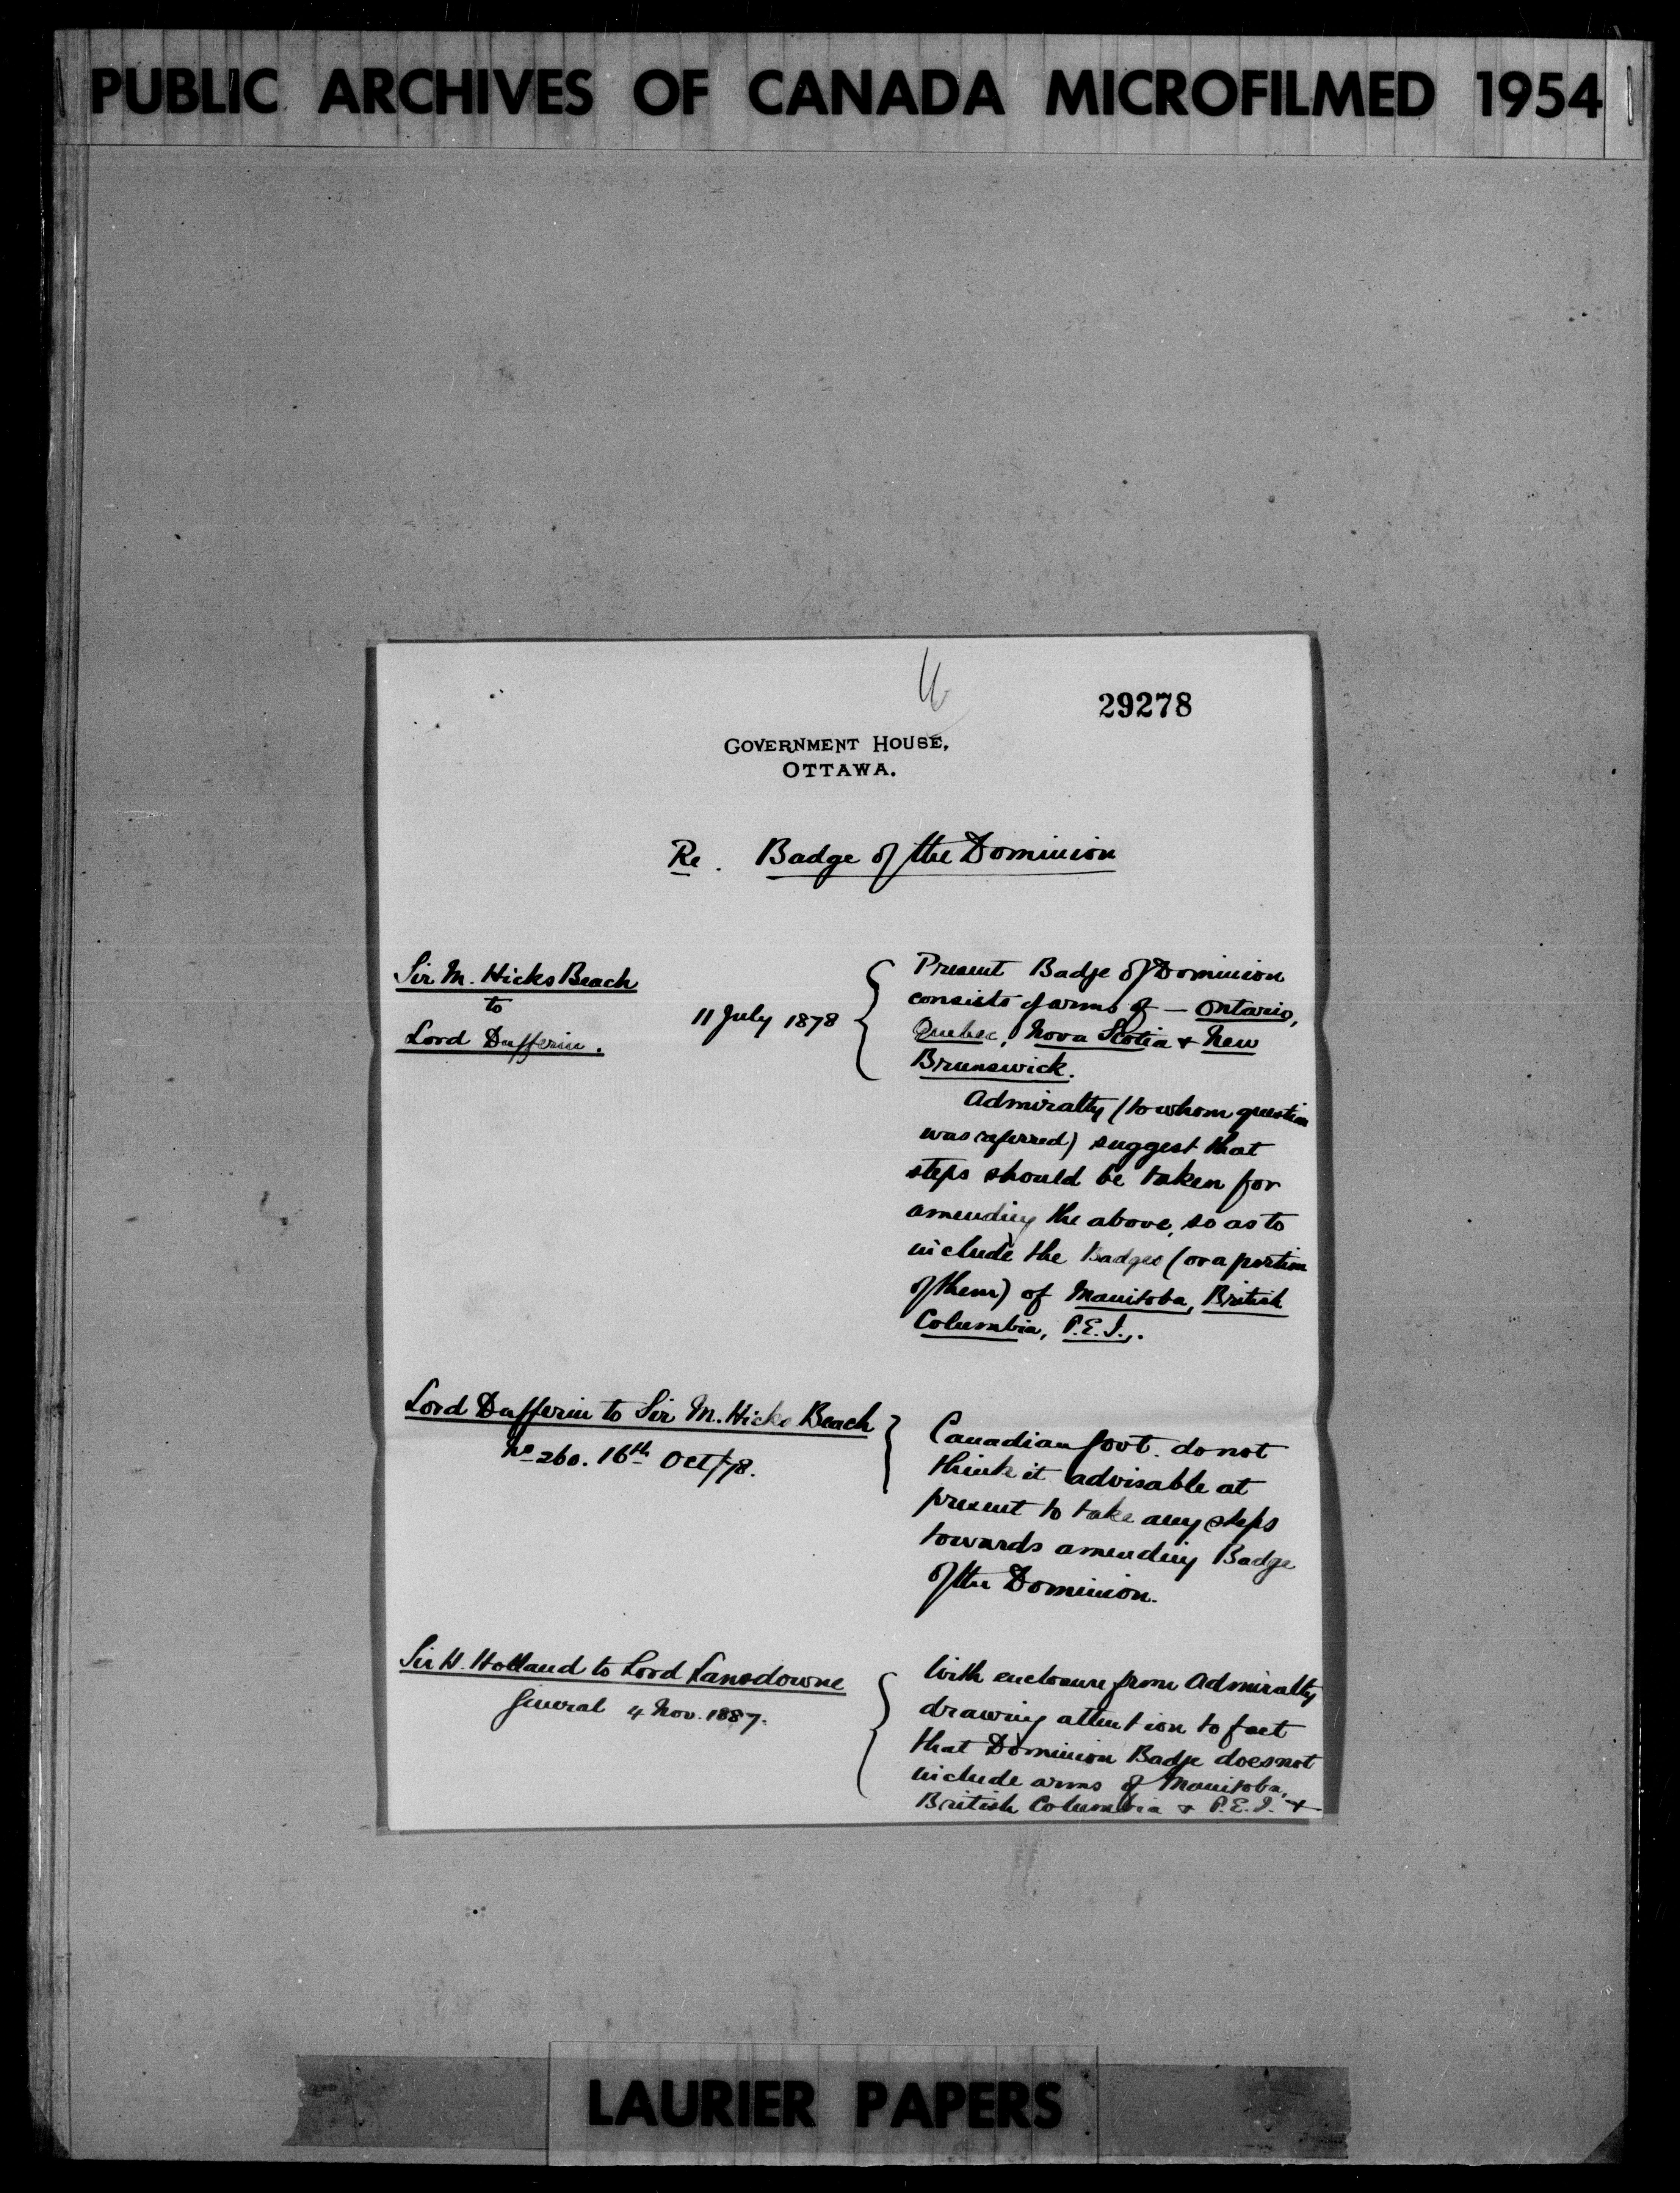 PUBLIC ARCHIVES OF CANADA MICROFILMED 1954
29278
GOVERNMENT HOUSE,
OTTAWA.
Re. Badge of the Dominion
Sir M. Hicks Beach
to
Lord Dufferin.
11 July 1878
Present Badge of Dominion
consists of arms of — Ontario,
Quebec, Nova Scotia & New
Brunswick.
Admiralty (to whom question
was referred) suggest that
steps should be taken for
amending the above, so as to
include the Badges (or a portion
of them) of Manitoba, British
Columbia, P.E.I.,.
Lord Dufferin to Sir M. Hicks Beach
No 260. 16th Oct/78.
Canadian Govt. do not
think it advisable at
present to take any steps
towards amending Badge
of the Dominion.
Sir H. Holland to Lord Lansdowne
General 4 Nov. 1887.
With enclosure from Admiralty
drawing attention to fact
that Dominion Badge does not
include arms of Manitoba,
British Columbia & P.E.I. &
LAURIER PAPERS